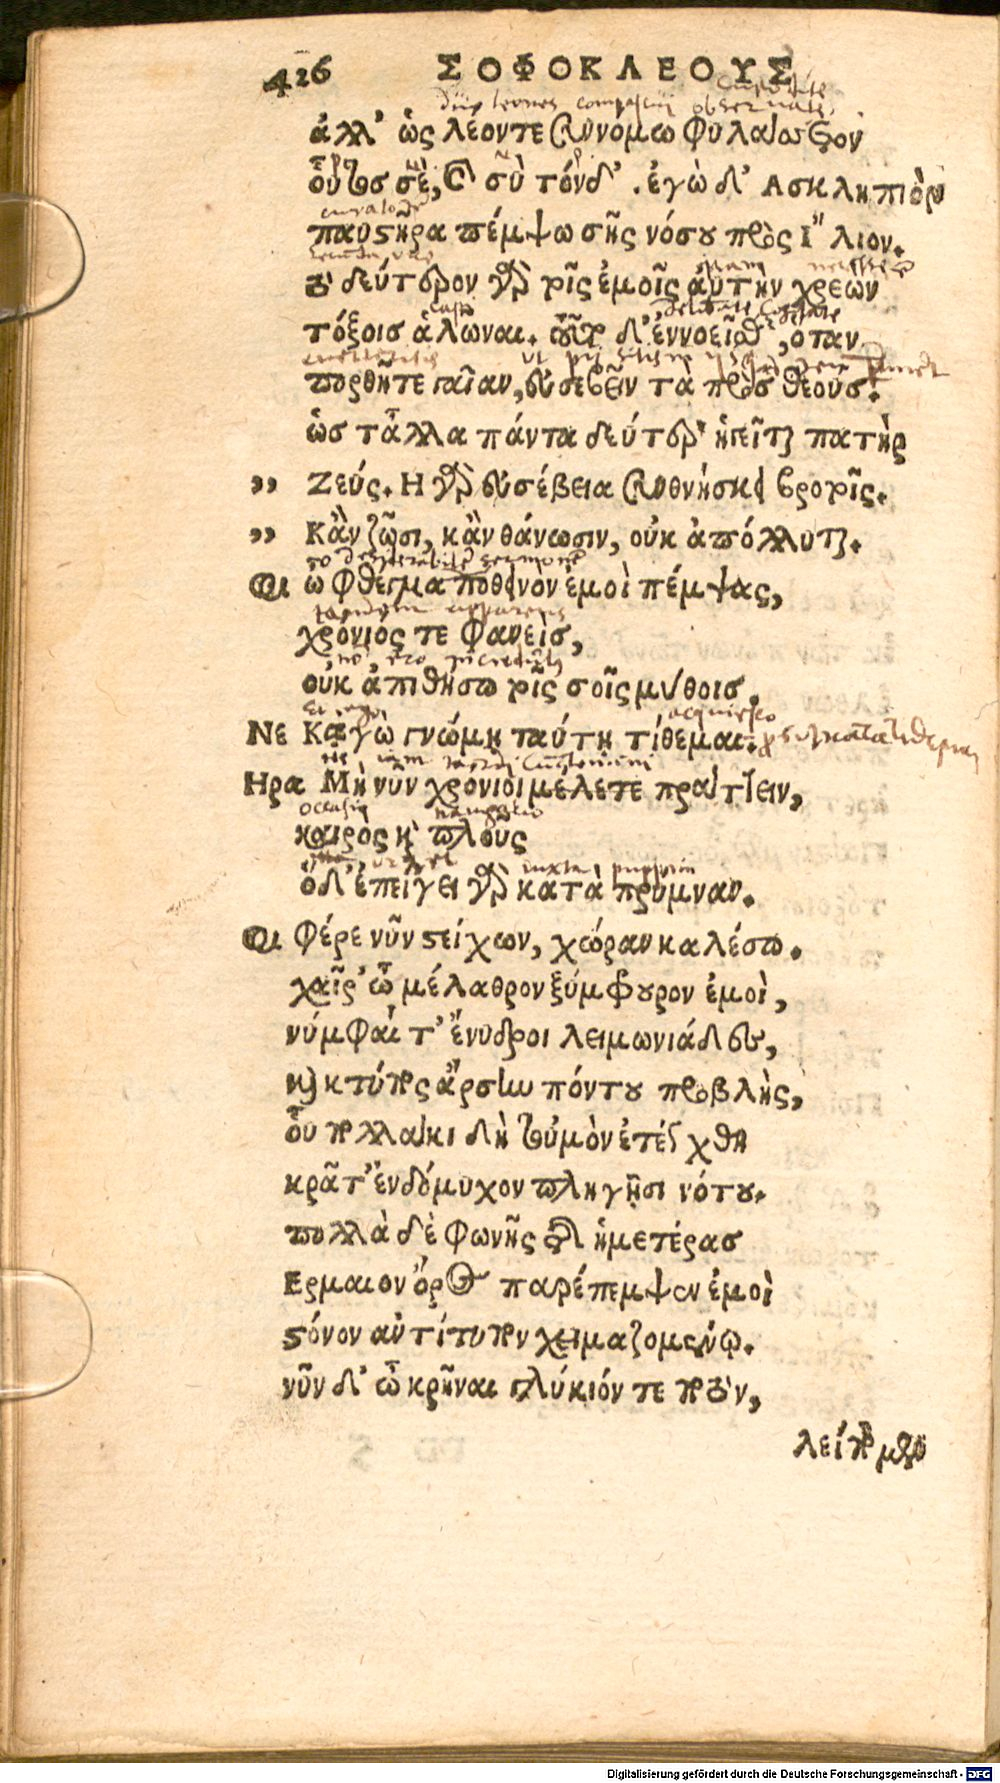 426 ΣΟΦΟΚΛΕΟΥΣ
ἀλλ' ὡς λέοντε συννόμω φυλάσσετον
οὗτος σὲ, καὶ σὺ τόνδ'. ἐγὼ δ' Ασκληπιὸν
παυστῆρα πέμψω σῆς νόσου πρὸς Ἴλιον.
τὸ δεύτερον γὰρ τοῖς ἐμοῖς αὐτὴν χρεὼν
τόξοισ ἁλῶναι. τοῦτο δ' ἐννοεῖσθ', ὅταν
πορθῆτε γαῖαν, εὐσεβεῖν τὰ πρὸς θεούς.
ὡσ τἆλλα πάντα δεύτερ' ἡγεῖται πατὴρ
,, Ζεύς. Η γὰρ εὐσέβεια συνθνήσκει βροτοῖς.
,, Κἂν ζῶσι, κἂν θάνωσιν, οὐκ ἀπόλλυται.
Φι ὦ φθέγμα ποθεινὸν ἐμοὶ πέμψας,
χρόνιος τε φανεὶσ,
οὐκ ἀπιθήσω τοῖς σοῖς μύθοισ.
Νε Κἀγὼ γνώμη ταύτη τίθεμαι.
Ηρα Μὴ νῦν χρόνιοι μέλετε πράττειν,
καιρος καὶ πλοῦς
ὅδ' ἐπείγει γὰρ κατὰ πρύμναν.
Φι Φέρε νῦν στείχων, χώραν καλέσω.
χαῖρ' ὦ μέλαθρον ξύμφουρον ἐμοὶ,
νύμφαι τ' ἔνυδροι λειμωνιάδες,
καὶ κτύπος ἄρσην πόντου προβλὴς,
οὗ πολλάκι δὴ τοὐμὸν ἐτέγχθη
κρᾶτ' ἐνδόμυχον πληγῇσι νότου.
πολλὰ δὲ φωνῆς τῆς ἡμετέρασ
Ερμαιον ὄρος παρέπεμψεν ἐμοὶ
στόνον ἀντίτυπον χειμαζομένῳ.
νῦν δ' ὦ κρῆναι γλύκιόν τε ποτὸν,
λείπομεν
Digitalisierung gefördert durch die Deutsche Forschungsgemeinschaft - DFG